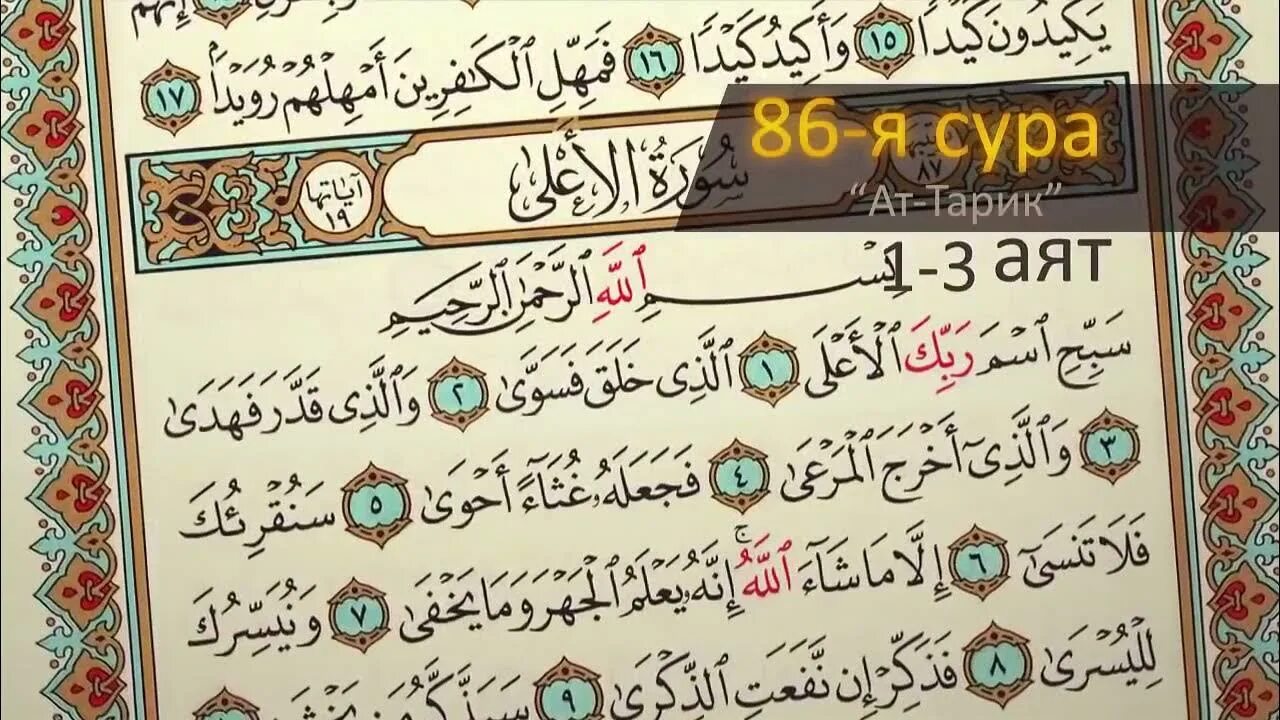 يَكِيدُونَ كَيْدًا ١٥ وَأَكِيدُ كَيْدًا ١٦ فَمَهِّلِ ٱلْكَٰفِرِينَ أَمْهِلْهُمْ رُوَيْدًۢا ١٧
86-я сура
“Ат-Тарик”
1-3 аят
سُورَةُ الأَعْلَىٰ
٨٧
آياتها ١٩
بِسْمِ ٱللَّهِ ٱلرَّحْمَٰنِ ٱلرَّحِيمِ
سَبِّحِ ٱسْمَ رَبِّكَ ٱلْأَعْلَى ١ ٱلَّذِى خَلَقَ فَسَوَّىٰ ٢ وَٱلَّذِى قَدَّرَ فَهَدَىٰ
٣ وَٱلَّذِىٓ أَخْرَجَ ٱلْمَرْعَىٰ ٤ فَجَعَلَهُۥ غُثَآءً أَحْوَىٰ ٥ سَنُقْرِئُكَ
فَلَا تَنسَىٰٓ ٦ إِلَّا مَا شَآءَ ٱللَّهُ ۚ إِنَّهُۥ يَعْلَمُ ٱلْجَهْرَ وَمَا يَخْفَىٰ ٧ وَنُيَسِّرُكَ
لِلْيُسْرَىٰ ٨ فَذَكِّرْ إِن نَّفَعَتِ ٱلذِّكْرَىٰ ٩